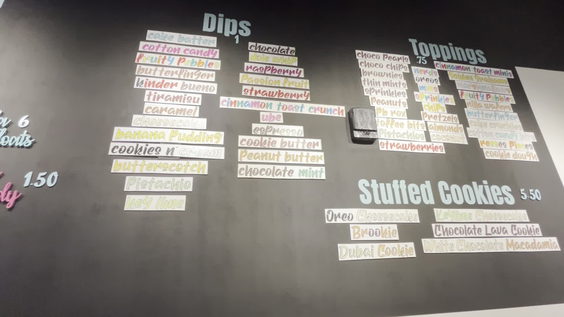 Dips
1
cake batter
cotton candy
Fruity Pebbles
butterfinger
kinder bueno
tiramisu
caramel
banana Pudding
cookies n cream
butterscotch
Pistachio
key lime
chocolate
raspberry
Passion Fruit
strawberry
cinnamon toast crunch
ube
espresso
cookie butter
Peanut butter
chocolate mint
Toppings
.75
choco Pearls
choco chips
brownies
thin mints
sprinkles
Peanuts
Pb rox
toffee bits
Pistachios
strawberries
oreos
Pretzels
almonds
cinnamon toast minis
Fruity Pebbles
butterfinger
cotton candy
Reeses Pieces
cookie dough
Stuffed Cookies 5.50
Oreo Cheesecake
Brookie
Dubai Cookie
Chocolate Lava Cookie
White Chocolate Macadamia
6
1.50